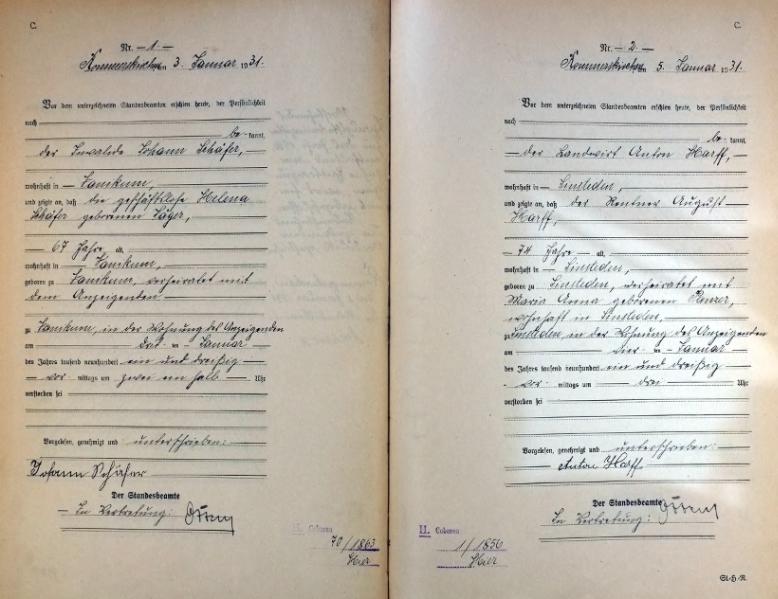 C.
Nr. — 1 —
Rommerskirchen 3. Januar 1931.
Vor dem unterzeichneten Standesbeamten erschien heute, der Persönlichkeit
nach
be- kannt,
der Invalide Johann Schäfer,
wohnhaft in — Vanikum,
und zeigte an, daß — die geschäftslose Helena
Schäfer geborenen Jäger,
— 67 Jahre — alt,
wohnhaft in — Vanikum,
geboren zu — Vanikum, verheiratet mit
dem Anzeigenden
zu Vanikum, in der Wohnung des Anzeigenden
am — drei — ten — Januar
des Jahres tausend neunhundert ein und dreißig
— vor — mittags um zwei ein halb — Uhr
verstorben sei
Vorgelesen, genehmigt und unterschrieben:
Johann Schäfer
Der Standesbeamte
— In Vertretung:
H. Geboren
70/1863
hier
C.
Nr. — 2. —
Rommerskirchen 5. Januar 1931.
Vor dem unterzeichneten Standesbeamten erschien heute, der Persönlichkeit
nach
be- kannt,
— der Landwirt Anton Harff, —
wohnhaft in — Sinsteden,
und zeigte an, daß — der Rentner August
Harff,
— 74 Jahre — alt,
wohnhaft in — Sinsteden,
geboren zu — Sinsteden, verheiratet mit
Maria Anna geborenen
wohnhaft in Sinsteden,
zu Sinsteden, in der Wohnung des Anzeigenden
am — vier — ten — Januar
des Jahres tausend neunhundert ein und dreißig
— vor — mittags um — drei — Uhr
verstorben sei
Vorgelesen, genehmigt und unterschrieben:
Anton Harff
Der Standesbeamte
In Vertretung:
H. Geboren
1/1856
hier
St.-H.-R.